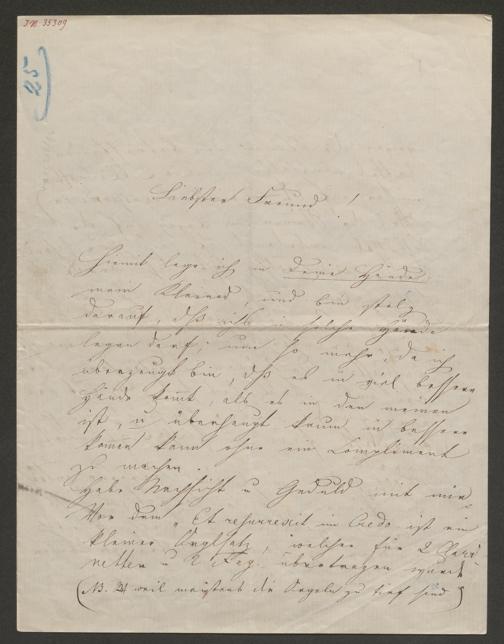 I.N. 35309
25
Liebster Freund!
Hiemit lege ich in Deine Hände
mein Kleinod, und bin stolz
darauf, daß ich's in solche Hände
legen darf; um so mehr, da ich
überzeugt bin, daß es in viel bessere
Hände kommt, als es in den meinen
ist, u überhaupt kaum in bessere
kommen kann ohne ein Compliment
zu machen.
Habe Nachsicht u Geduld mit mir
Vor dem „Et resurrexit im Credo ist ein
kleiner Orglsatz, welcher für 2 Clari
netten u 2 Fag. übertragen wurde
(NB. weil meistens die Orgeln zu tief sind)